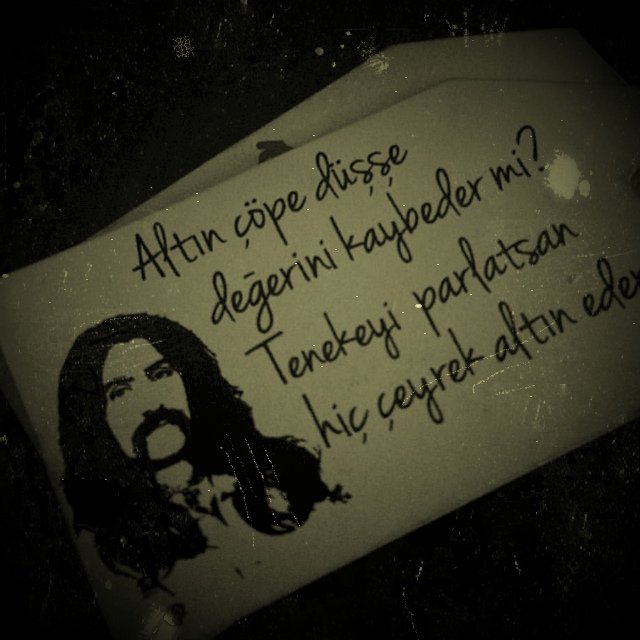 Altın çöpe düşşe
değerini kaybeder mi?
Tenekeyi parlatsan
hiç çeyrek altın eder